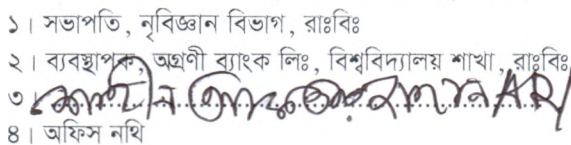 ১। সভাপতি, নৃবিজ্ঞান বিভাগ, রাঃবিঃ
২। ব্যবস্থাপক, অগ্রণী ব্যাংক লিঃ, বিশ্ববিদ্যালয় শাখা, রাঃবিঃ
৩।
৪। অফিস নথি